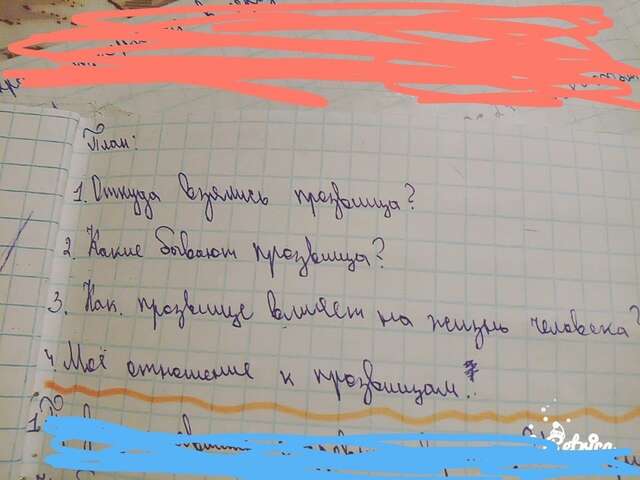 План:
1. Откуда взялись прозвища?
2. Какие бывают прозвища?
3. Как прозвище влияет на жизнь человека?
4. Моё отношение к прозвищам.
1.